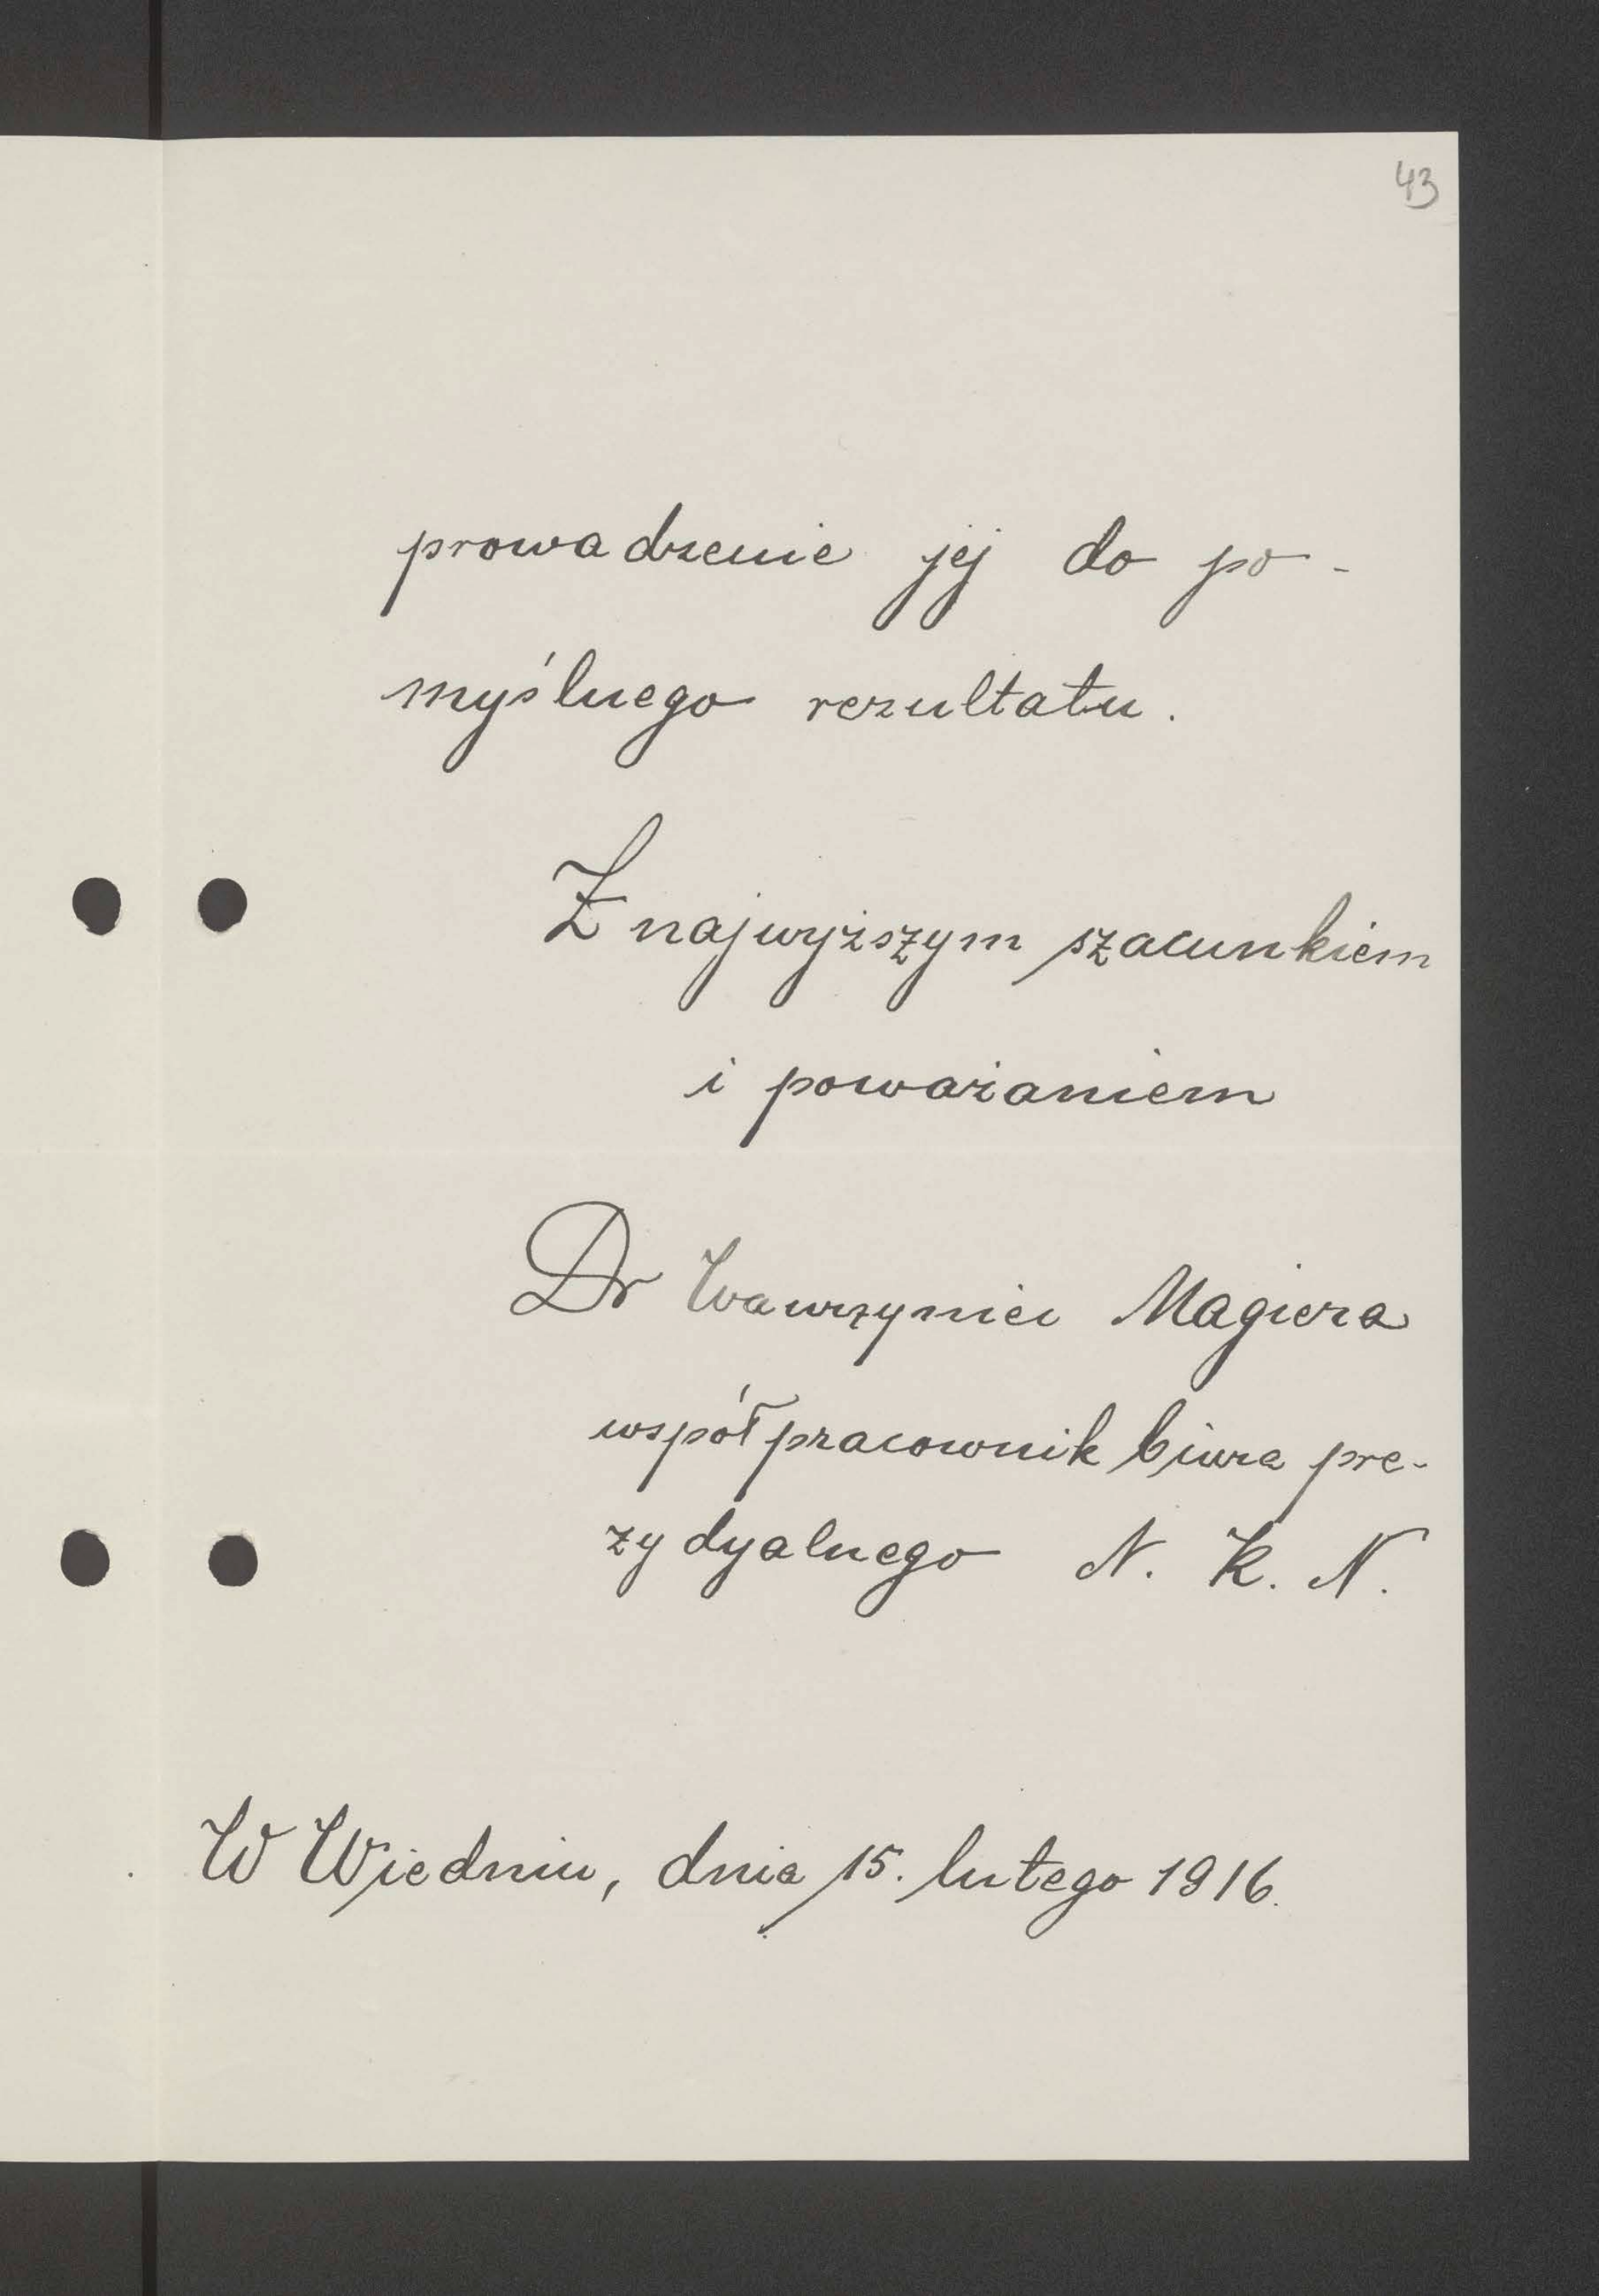 43
prowadzenie jej do po-
myślnego rezultatu.
Z najwyższym szacunkiem
i poważaniem
Dr Wawrzyniec Magiera
współpracownik biura pre-
zydyalnego N. K. N.
W Wiedniu, dnia 15. lutego 1916.